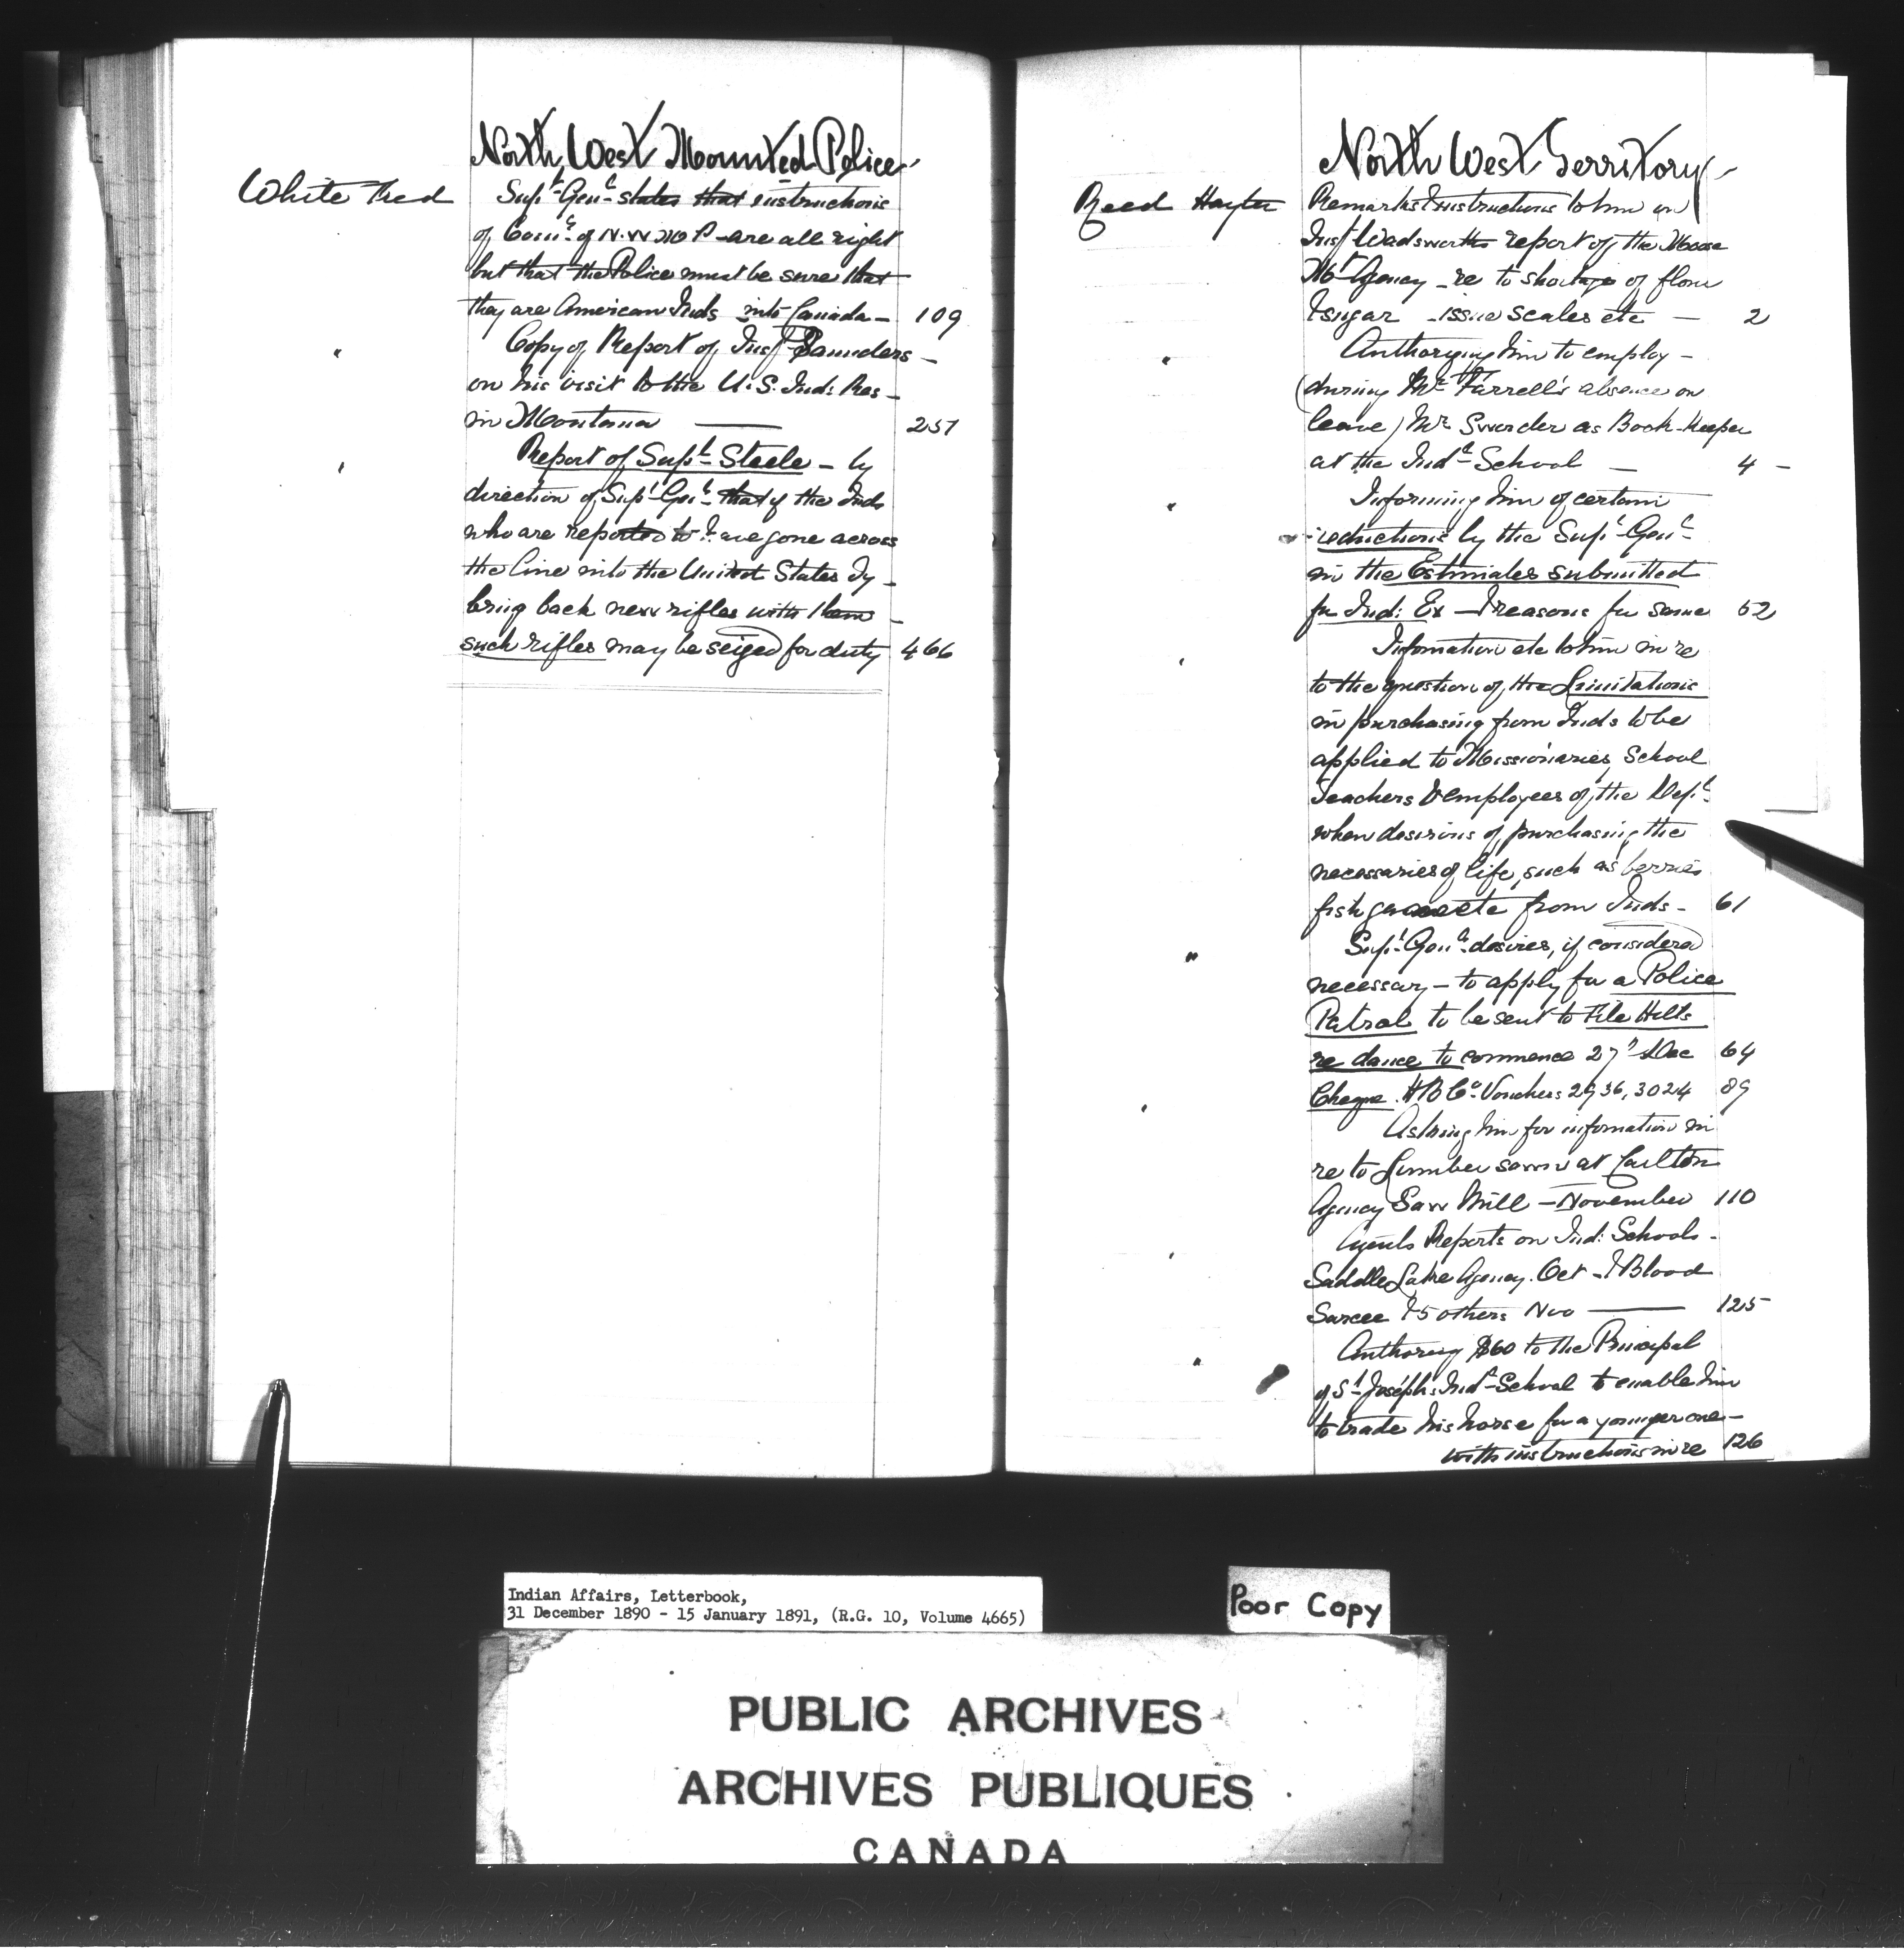 North West Mounted Police
White Fred
Supt. Genl. states that instructions
of Comr. of N.W.M.P. are all right
but that the Police must be sure that
they are American Inds into Canada — 109
" Copy of Report of Insp. Saunders —
on his visit to the U.S. Ind: Res —
in Montana — 257
" Report of Supt. Steele — by
direction of Supt. Genl. that if the Inds
who are reported to have gone across
the line into the United States
bring back new rifles with them —
such rifles may be seized for duty 466
North West Territory
Reed Hayter
Remarks & instructions to him on
Insp Wadsworth report of the Moose
Mt Agency — re to shortage of flour
& sugar — issue scales etc — 2
" Authorizing him to employ —
(during Mr. Farrell's absence on
leave) Mr. Sworder as Book-Keeper
at the Indl. School — 4 —
" Informing him of certain
reductions by the Supt. Genl.
in the Estimates submitted
for Ind: Ex — & reasons for same 52
" Information etc to him in re
to the question of the Limitations
in purchasing from Inds to be
applied to Missionaries, School
Teachers & employees of the Dept.
when desirous of purchasing the
necessaries of life, such as berries
fish game etc from Inds — 61
" Supt. Genl. desires, if considered
necessary — to apply for a Police
Patrol to be sent to File Hills
re dance to commence 27th Dec 64
Cheque. H B Co. Vouchers 2936, 3024 89
" Asking him for information in
re to Lumber sawn at Carlton
Agency Saw Mill — November 110
" Agents Reports on Ind: Schools —
Saddle Lake Agency. Oct — & Blood
Sarcee & 5 others Nov — 125
" Authorizg $60 to the Principal
of St. Joseph's Indl. School to enable him
to trade his horse for a younger one —
with instructions in re 126
Indian Affairs, Letterbook,
31 December 1890 - 15 January 1891, (R.G. 10, Volume 4665)
Poor Copy
PUBLIC ARCHIVES
ARCHIVES PUBLIQUES
CANADA